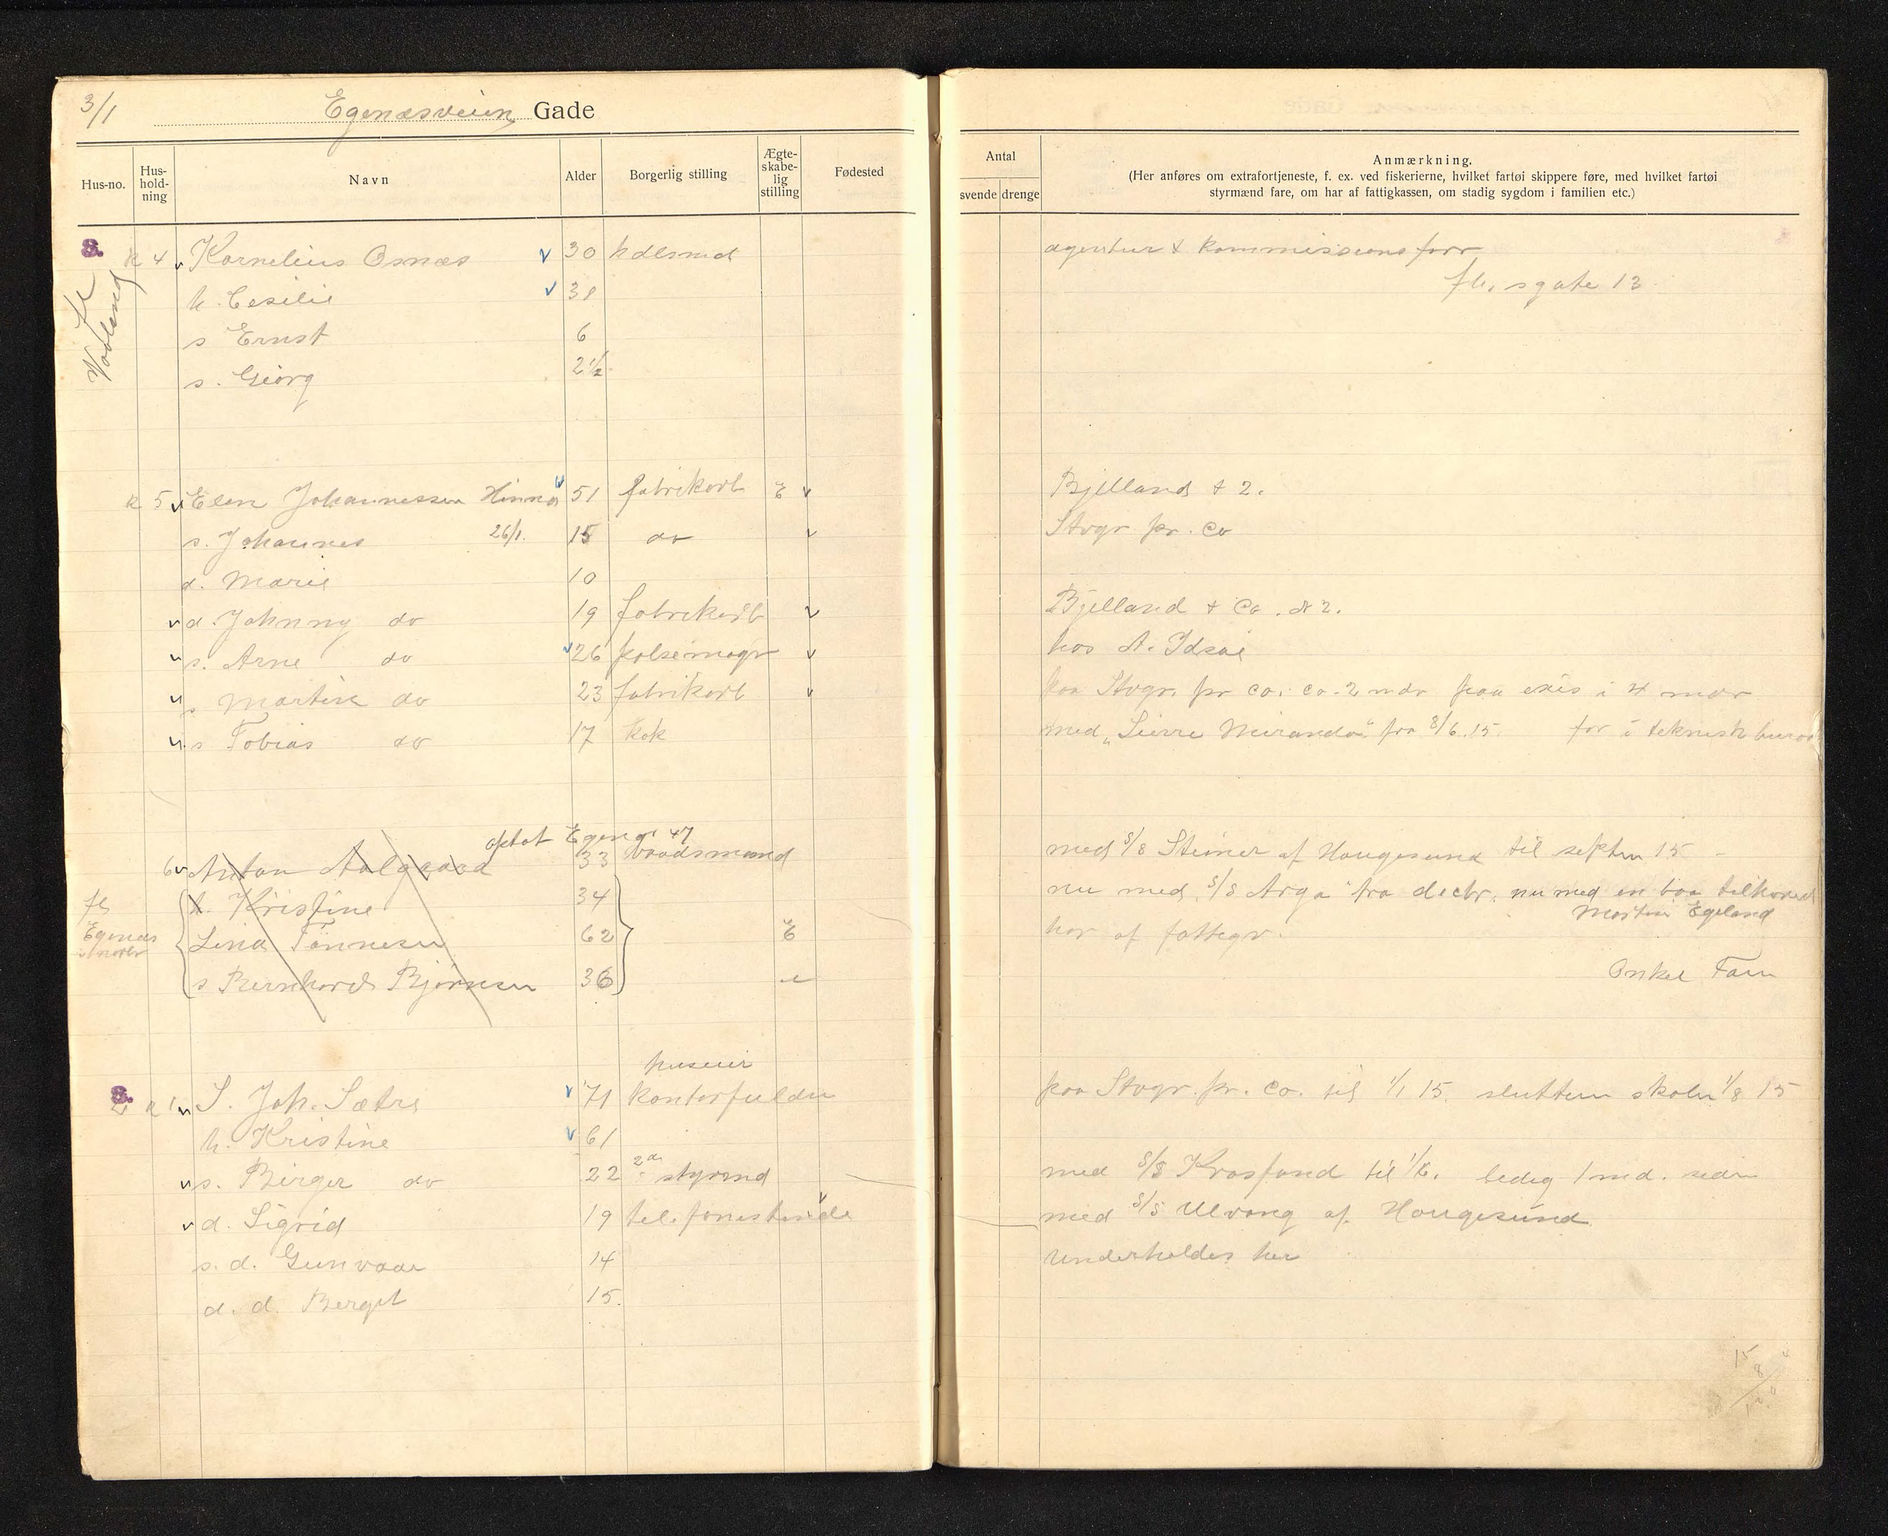 3/1
Egenæsveien Gade
Hus-no.
Hus-hold-ning
Navn
Alder
Borgerlig stilling
Ægte-skabe-lig stilling
Fødested
Antal
svende drenge
Anmærkning.
(Her anføres om extrafortjeneste, f. ex. ved fiskerierne, hvilket fartøi skippere føre, med hvilket fartøi
styrmænd fare, om har af fattigkassen, om stadig sygdom i familien etc.)
8. k 4 Kornelius Osnæs 30 hdlsmd agentur & kommissionsforr
h. Cesilie 38 gate 13
s Ernst 6
s. Georg 2 1/2
k 5 Elen Johannessen Hinna 51 fabrikarb E Bjelland & 2.
s. Johannes 26/1. 15 do Stvgr pr. Co
d. Marie 10
d. Johnny do 19 fabrikarb Bjelland & Co. № 2.
s. Arne do 26 pølsemagr hos A. Idsøe
s Martin do 23 fabrikarb paa Stvgr. pr co. ca. 2 mdr i 4 mdr
s Tobias do 17 kok med "Sierra Miranda" fra 8/6.15. før i teknisk bureau
optat Egenæs 47
6 Anton Aalgaard 33 baadsmand med S/S Steiner af Haugesund til septem 15
h. Kristine 34 nu med S/S Arga fra decbr. nu med en
fl Egenæs
Lina Tønnesen 62 E har af fattigv. Martin Egeland
s Bernhard Bjørnsen 36 Onkel Tom
huseier
8. 2 k 1 S. Joh. Sætre 71 kontorfuldm paa Stvgr. pr. co. til 1/1 15. skolen 1/8 15
h. Kristine 61
s. Birger do 22 2den styrmd med S/S Krosfond til 1/6. ledig 1 md. siden
d. Sigrid 19 telefonistinde med S/S Ulvang af Haugesund
s. d. Gunvaar 14 underholdes her
d. d. Berget 15.